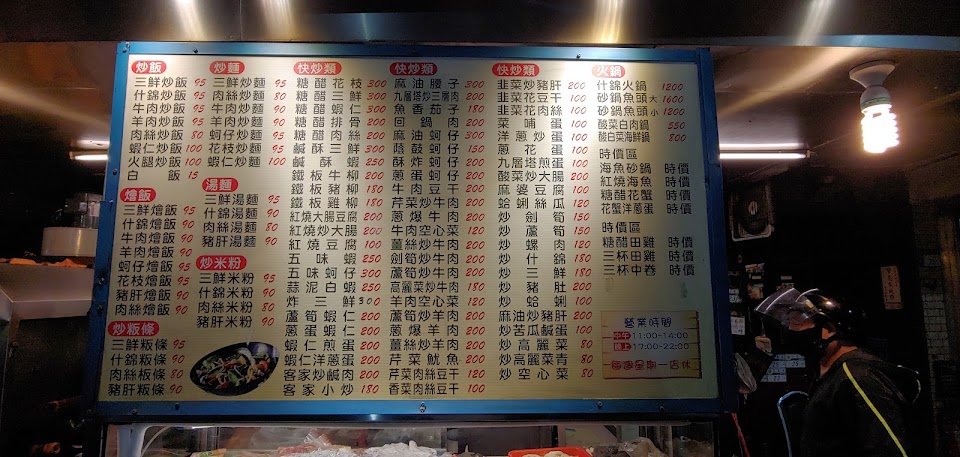 炒飯
三鮮炒飯 95
什錦炒飯 95
牛肉炒飯 95
羊肉炒飯 95
肉絲炒飯 80
蝦仁炒飯 100
火腿炒飯 100
白飯 15
燴飯
三鮮燴飯 95
什錦燴飯 90
牛肉燴飯 90
羊肉燴飯 90
蚵仔燴飯 95
花枝燴飯 95
豬肝燴飯 90
肉絲燴飯 80
炒粄條
三鮮粄條 95
什錦粄條 90
肉絲粄條 80
豬肝粄條 90
炒麵
三鮮炒麵 95
肉絲炒麵 80
牛肉炒麵 90
羊肉炒麵 90
蚵仔炒麵 95
花枝炒麵 95
蝦仁炒麵 100
湯麵
三鮮湯麵 95
什錦湯麵 90
肉絲湯麵 80
豬肝湯麵 80
炒米粉
三鮮米粉 95
什錦米粉 90
肉絲米粉 80
豬肝米粉 90
快炒類
糖醋花枝 300
糖醋三鮮 300
糖醋蝦仁 300
糖醋排骨 200
糖醋肉絲 200
鹹酥三鮮 300
鹹酥蝦 250
鐵板牛柳 200
鐵板豬柳 180
鐵板雞柳 180
紅燒大腸豆腐 200
紅燒炒大腸 200
紅燒豆腐 100
五味蝦 250
五味蚵仔 300
蒜泥白蝦 250
炸三鮮 300
蘆筍蝦仁 200
蔥蛋蝦仁 200
蝦仁煎蛋 200
蝦仁洋蔥蛋 200
客家炒鹹肉 200
客家小炒 180
快炒類
麻油腰子 200
九層塔炒三層肉 200
魚香茄子 180
回鍋肉 200
麻油蚵仔 200
蔭鼓蚵仔 200
酥炸蚵仔 200
蔥蛋蚵仔 200
牛肉豆干 120
芹菜炒牛肉 120
蔥爆牛肉 120
牛肉空心菜 120
薑絲炒牛肉 120
劍筍炒牛肉 200
蘆筍炒牛肉 200
高麗菜炒牛肉 120
羊肉空心菜 120
炒羊肉 120
蔥爆羊肉 120
薑絲炒羊肉 120
芹菜魷魚 120
芹菜肉絲豆干 120
香菜肉絲豆干 100
快炒類
韭菜炒豬肝 200
韭菜花豆干 100
韭菜花肉絲 100
菜哺蛋 100
洋蔥炒蛋 100
蔥花蛋 100
九層塔煎蛋 100
酸菜炒大腸 200
麻婆豆腐 100
蛤蜊絲瓜 120
炒劍筍 150
炒蘆筍 150
炒螺肉 120
炒什錦 180
炒三鮮 180
炒豬肚 200
炒蛤蜊 100
麻油炒豬肝 200
炒苦瓜鹹蛋 100
炒高麗菜 80
炒高麗菜青 80
炒空心菜 80
火鍋
什錦火鍋 1200
砂鍋魚頭大 1600
砂鍋魚頭小 1200
酸菜白肉鍋 550
酸白菜海鮮鍋 800
時價區
海魚砂鍋 時價
紅燒海魚 時價
糖醋花蟹 時價
花蟹洋蔥蛋 時價
時價區
糖醋田雞 時價
三杯田雞 時價
三杯中卷 時價
營業時間
中午 11:00~14:00
晚上 17:00~22:00